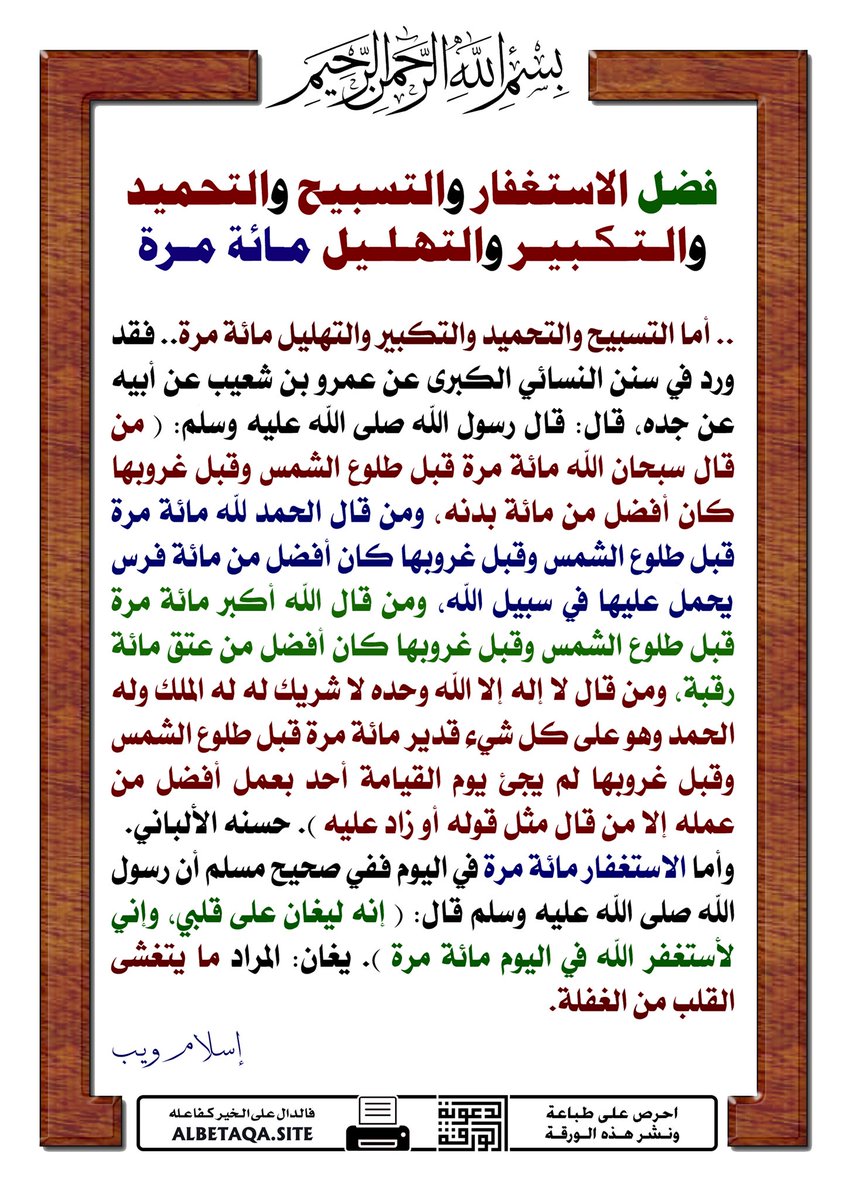 بسم الله الرحمن الرحيم
فضل الاستغفار والتسبيح والتحميد
والتكبير والتهليل مائة مرة
.. أما التسبيح والتحميد والتكبير والتهليل مائة مرة.. فقد
ورد في سنن النسائي الكبرى عن عمرو بن شعيب عن أبيه
عن جده، قال: قال رسول الله صلى الله عليه وسلم: ( من
قال سبحان الله مائة مرة قبل طلوع الشمس وقبل غروبها
كان أفضل من مائة بدنه، ومن قال الحمد لله مائة مرة
قبل طلوع الشمس وقبل غروبها كان أفضل من مائة فرس
يحمل عليها في سبيل الله، ومن قال الله أكبر مائة مرة
قبل طلوع الشمس وقبل غروبها كان أفضل من عتق مائة
رقبة، ومن قال لا إله إلا الله وحده لا شريك له له الملك وله
الحمد وهو على كل شيء قدير مائة مرة قبل طلوع الشمس
وقبل غروبها لم يجئ يوم القيامة أحد بعمل أفضل من
عمله إلا من قال مثل قوله أو زاد عليه ). حسنه الألباني.
وأما الاستغفار مائة مرة في اليوم ففي صحيح مسلم أن رسول
الله صلى الله عليه وسلم قال: ( إنه ليغان على قلبي، وإني
لأستغفر الله في اليوم مائة مرة ). يغان: المراد ما يتغشى
القلب من الغفلة.
إسلام ويب
احرص على طباعة
ونشر هذه الورقة
الورقة الدعوية
فالدال على الخير كفاعله
ALBETAQA.SITE